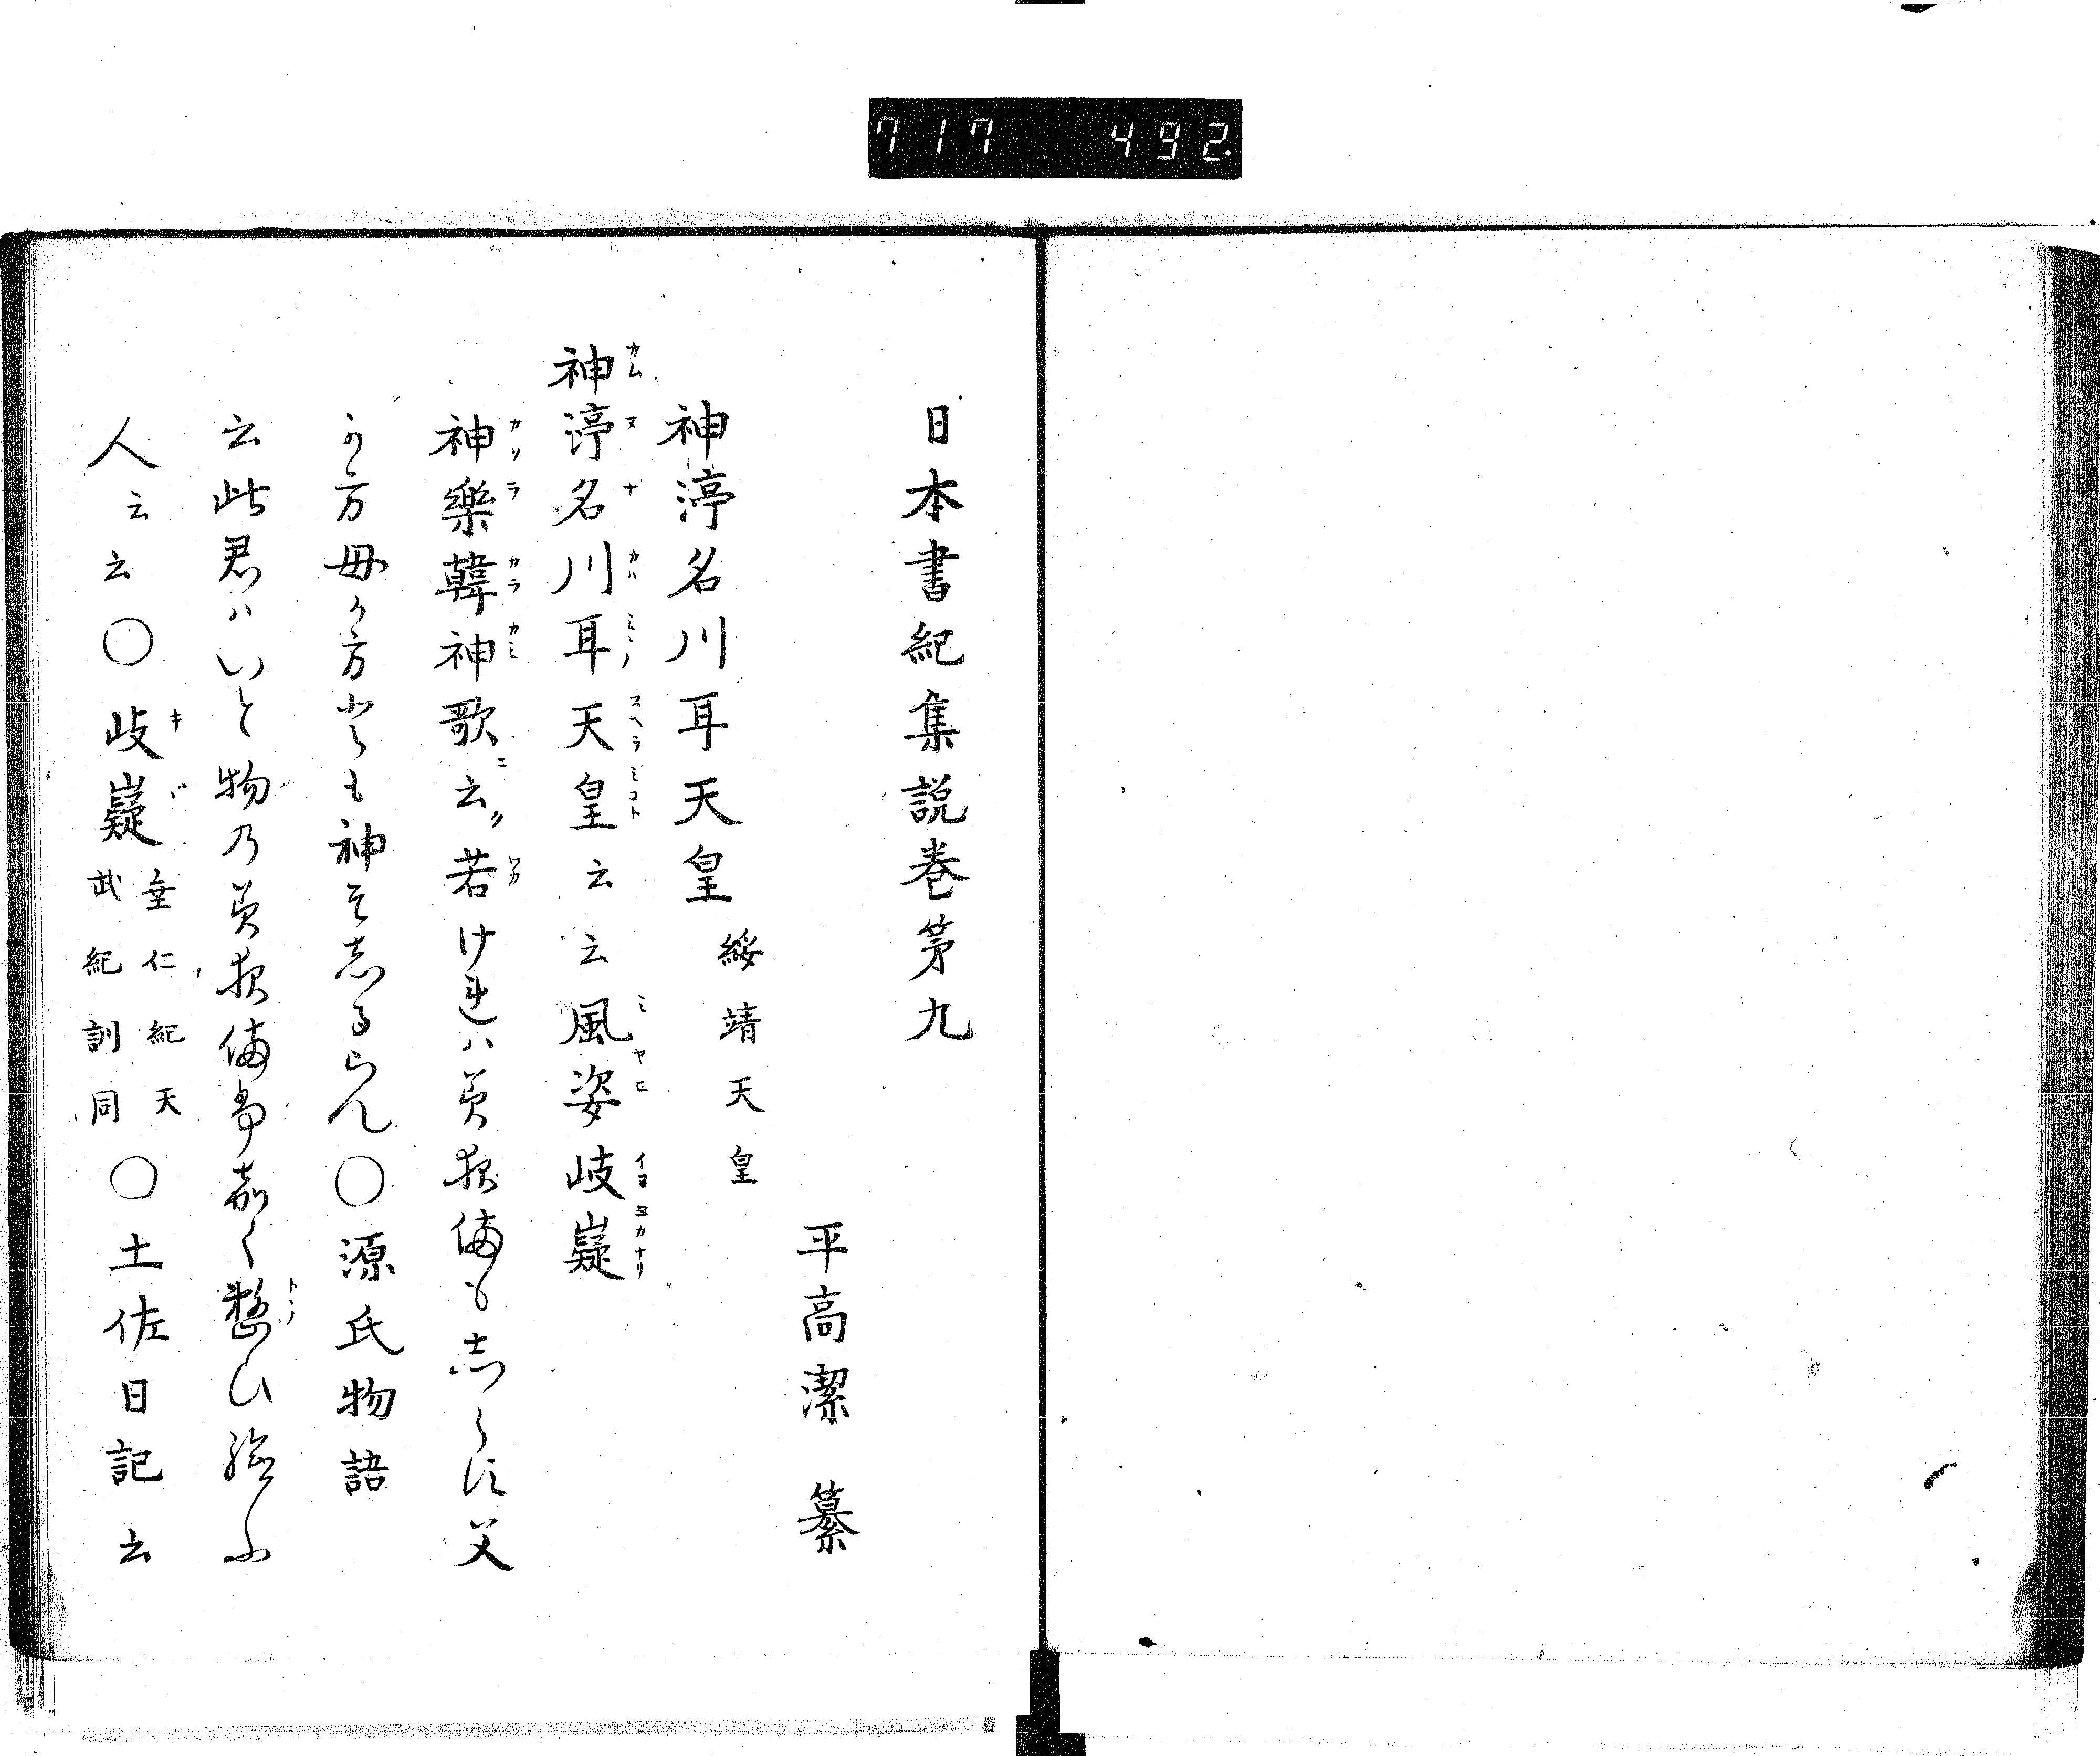 717 492
日本書紀集説巻第九
平高潔 纂
神渟名川耳天皇 綏靖天皇
神渟名川耳天皇云云云風姿岐嶷
神樂韓神歌ニ云ク若け連ハ美夜備も志らに父
か方母か方とも神そ志るらん〇源氏物語
云此君ハいと物乃美夜備く整ひ給ふ
人云云〇岐嶷 垂仁紀天武紀訓同 〇土佐日記云